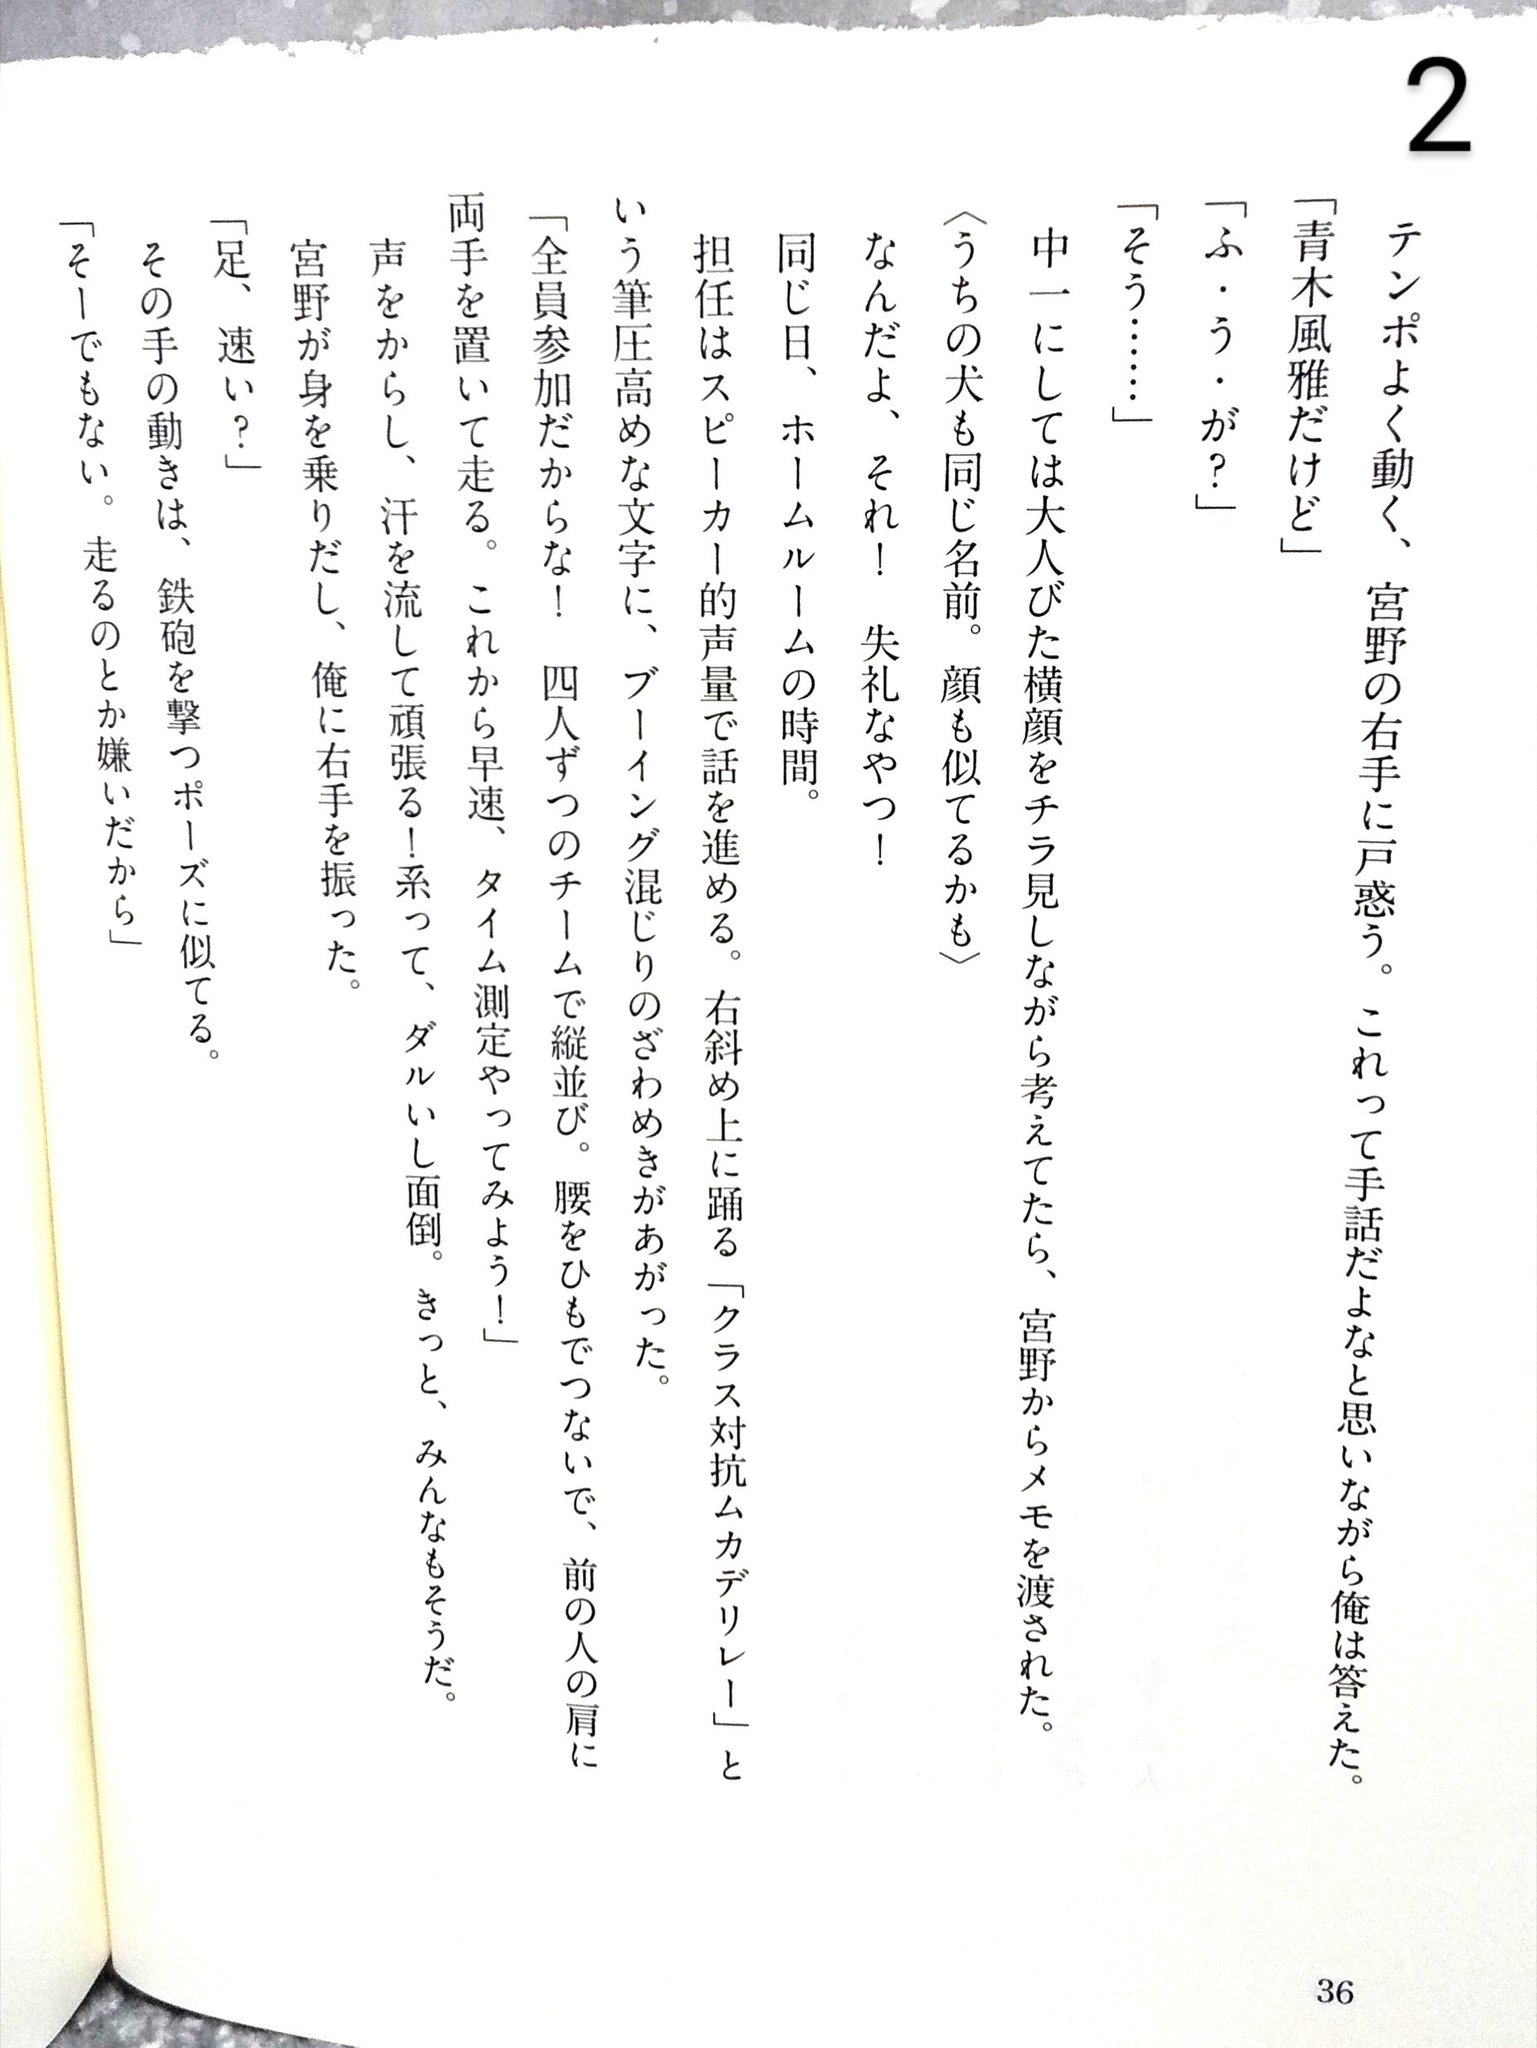 2
テンポよく動く、宮野の右手に戸惑う。これって手話だよなと思いながら俺は答えた。
「青木風雅だけど」
「ふ・う・が?」
「そう……」
中一にしては大人びた横顔をチラ見しながら考えてたら、宮野からメモを渡された。
〈うちの犬も同じ名前。顔も似てるかも〉
なんだよ、それ! 失礼なやつ!
同じ日、ホームルームの時間。
担任はスピーカー的声量で話を進める。右斜め上に踊る「クラス対抗ムカデリレー」と
いう筆圧高めな文字に、ブーイング混じりのざわめきがあがった。
「全員参加だからな! 四人ずつのチームで縦並び。腰をひもでつないで、前の人の肩に
両手を置いて走る。これから早速、タイム測定やってみよう!」
声をからし、汗を流して頑張る!系って、ダルいし面倒。きっと、みんなもそうだ。
宮野が身を乗りだし、俺に右手を振った。
「足、速い?」
その手の動きは、鉄砲を撃つポーズに似てる。
「そーでもない。走るのとか嫌いだから」
36